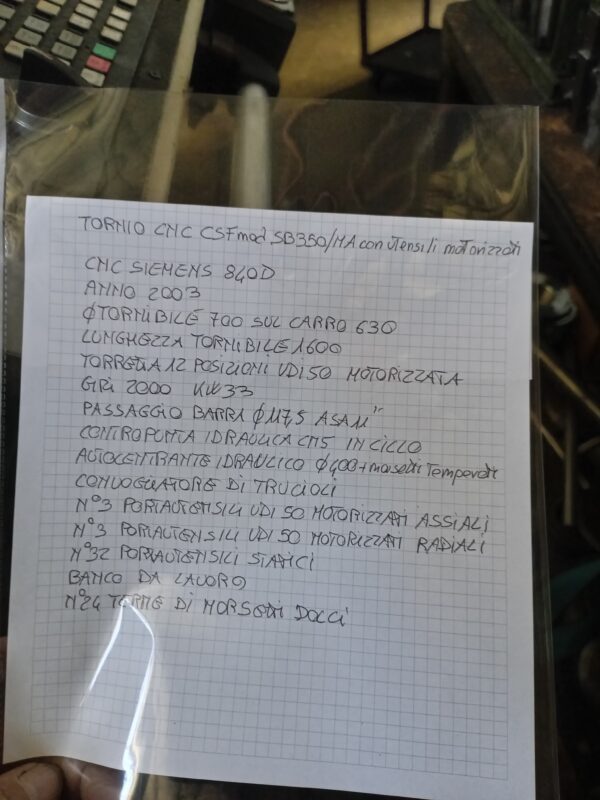 TORNIO CNC CSF mod SB350/MA con utensili motorizzati
CNC SIEMENS 840D
ANNO 2003
Ø TORNIBILE 700 SUL CARRO 630
LUNGHEZZA TORNIBILE 1600
TORRETTA 12 POSIZIONI VDI 50 MOTORIZZATA
GIRI 2000 KW 33
PASSAGGIO BARRA Ø 117,5 ASA 11"
CONTROPUNTA IDRAULICA CM5 IN CICLO
AUTOCENTRANTE IDRAULICO Ø 400 + morsetti Temperati
CONVOGLIATORE DI TRUCIOLI
N°3 PORTAUTENSILI VDI 50 MOTORIZZATI ASSIALI
N°3 PORTAUTENSILI VDI 50 MOTORIZZATI RADIALI
N°32 PORTAUTENSILI STATICI
BANCO DA LAVORO
N°24 TERNE DI MORSETTI DOLCI